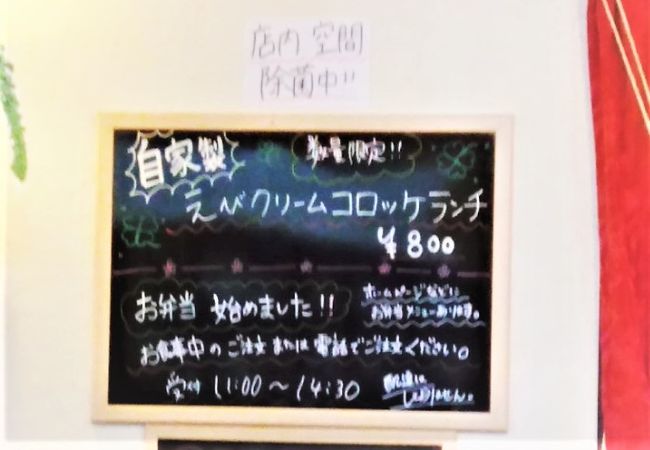 店内 空間
除菌中!!
自家製 数量限定!!
えびクリームコロッケランチ
¥800
お弁当 始めました!!
ホームページなどに
お弁当メニューあります。
お食事中のご注文または電話でご注文ください。
受付 11:00〜14:30
配達は
しておりません。